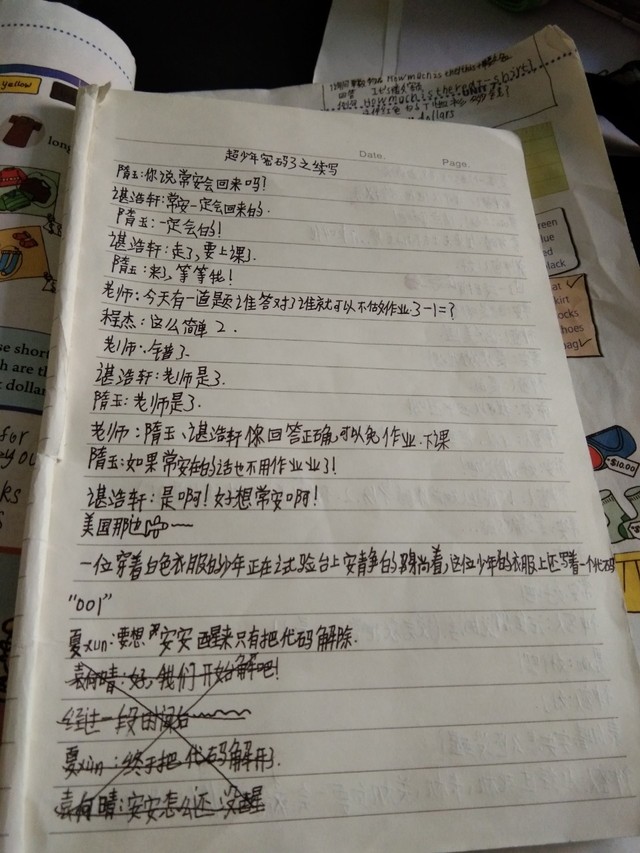 yellow
long
How much is
dollars
超少年密码3之续写
Date.
Page.
隋玉:你说常安会回来吗!
谌浩轩:常安一定会回来的.
隋玉:一定会的!
谌浩轩:走了,要上课了.
隋玉:来了,等等我!
老师:今天有一道题谁答对了谁就可以不做作业.3-1=?
程杰:这么简单 2.
老师:错了.
谌浩轩:老师是3.
隋玉:老师是3.
老师:隋玉、谌浩轩你回答正确,可以免作业.下课
隋玉:如果常安在的话也不用作业业了!
谌浩轩:是啊!好想常安啊!
美国那边
一位穿着白色衣服的少年正在试验台上安静的躺着,这位少年的衣服上还写着一个代码
"001"
夏xun:要想安安醒来只有把代码解除.
袁何晴:好,我们开始解吧!
经过一段时间后
夏xun:终于把代码解开了.
袁何晴:安安怎么还没醒
se short
h are th
t dollar
for
een
lue
ed
lack
at
kirt
ocks
hoes
bag
$10.00